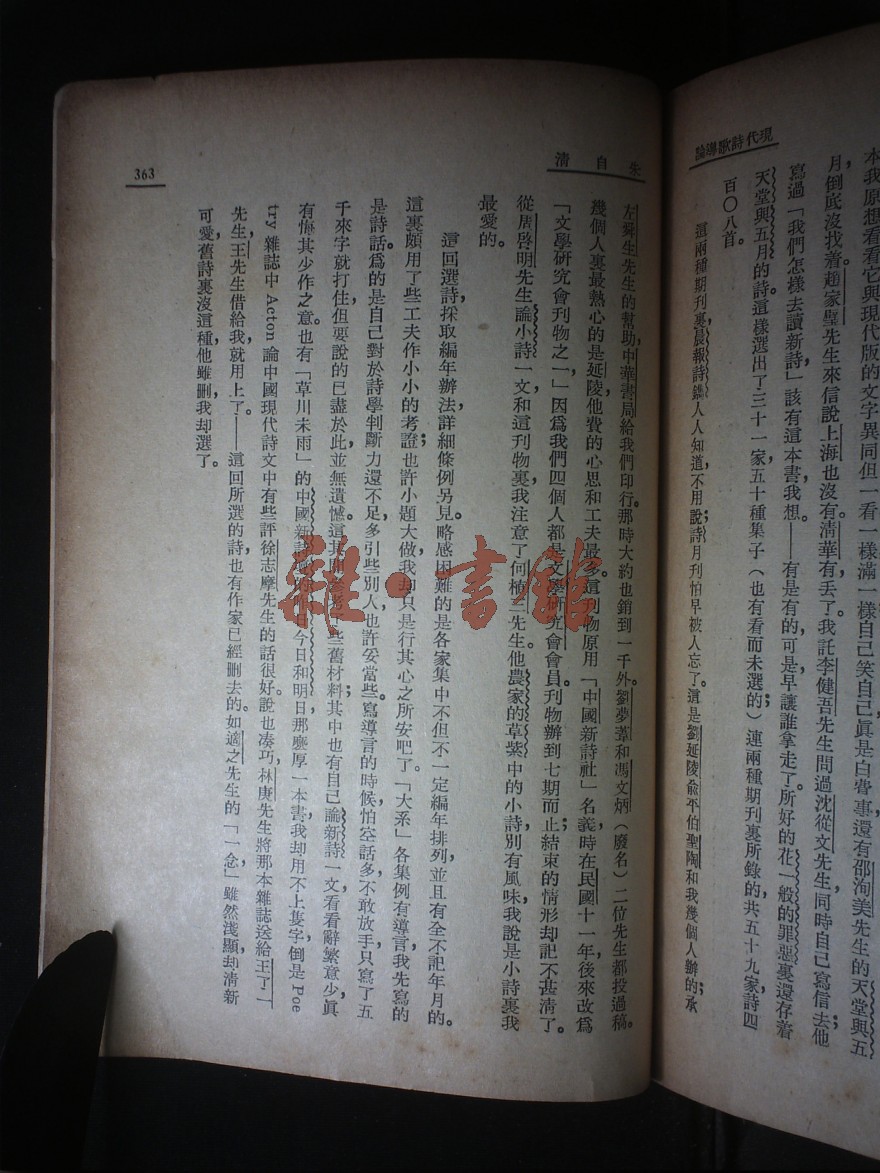 現代詩歌導論
本我原想看看它與現代版的文字異同但一看一樣滿一樣自己笑自己眞是白費事還有邵洵美先生的天堂與五
月，倒底沒找着趙家璧先生來信說上海也沒有；清華有丟了。我託李健吾先生問過沈從文先生，同時自己寫信去；他
寫過「我們怎樣去讀新詩」該有這本書，我想。——有是有的，可是早讓誰拿走了。所好的花一般的罪惡裏還存着
天堂與五月的詩。這樣選出了三十一家，五十種集子（也有看而未選的）連兩種期刊裏所錄的共五十九家，詩四
百〇八首。
這兩種期刊裏，晨報詩鐫人人知道，不用說；詩月刊怕早被人忘了。這是劉延陵俞平伯聖陶和我幾個人辦的；承
朱自清
左舜生先生的幫助，中華書局給我們印行。那時大約也銷到一千外。劉夢葦和馮文炳（廢名）二位先生都投過稿。
幾個人裏最熱心的是延陵，他費的心思和工夫最多。這刊物原用「中國新詩社」名義，時在民國十一年，後來改爲
「文學研究會刊物之一，」因爲我們四個人都是文學研究會會員。刊物辦到七期而止；結束的情形却記不甚清了。
從周啓明先生論小詩一文和這刊物裏，我注意了何植三先生。他農家的草紫中的小詩別有風味，我說是小詩裏我
最愛的。
這回選詩，採取編年辦法，詳細條例另見。略感困難的是各家集中不但不一定編年排列，並且有全不記年月的。
這裏頗用了些工夫作小小的考證；也許小題大做，我却只是行其心之所安吧了。「大系」各集例有導言，我先寫的
是詩話。爲的是自己對於詩學判斷力還不足，多引些別人，也許妥當些。寫導言的時候，怕空話多，不敢放手，只寫了五
千來字就打住。但要說的已盡於此，並無遺憾。這其間參考了些舊材料；其中也有自己論新詩一文，看看辭繁意少，眞
有悔其少作之意。也有「草川未雨」的中國新詩壇的昨日今日和明日，那麼厚一本書，我却用不上隻字。倒是Poe
try 雜誌中 Acton 論中國現代詩文中有些評徐志摩先生的話很好。說也湊巧，林庚先生將那本雜誌送給王了一
先生，王先生借給我，就用上了。——這回所選的詩，也有作家已經删去的。如適之先生的「一念」，雖然淺顯，却清新
可愛，舊詩裏沒這種，他雖删，我却選了。
363
雜·書館